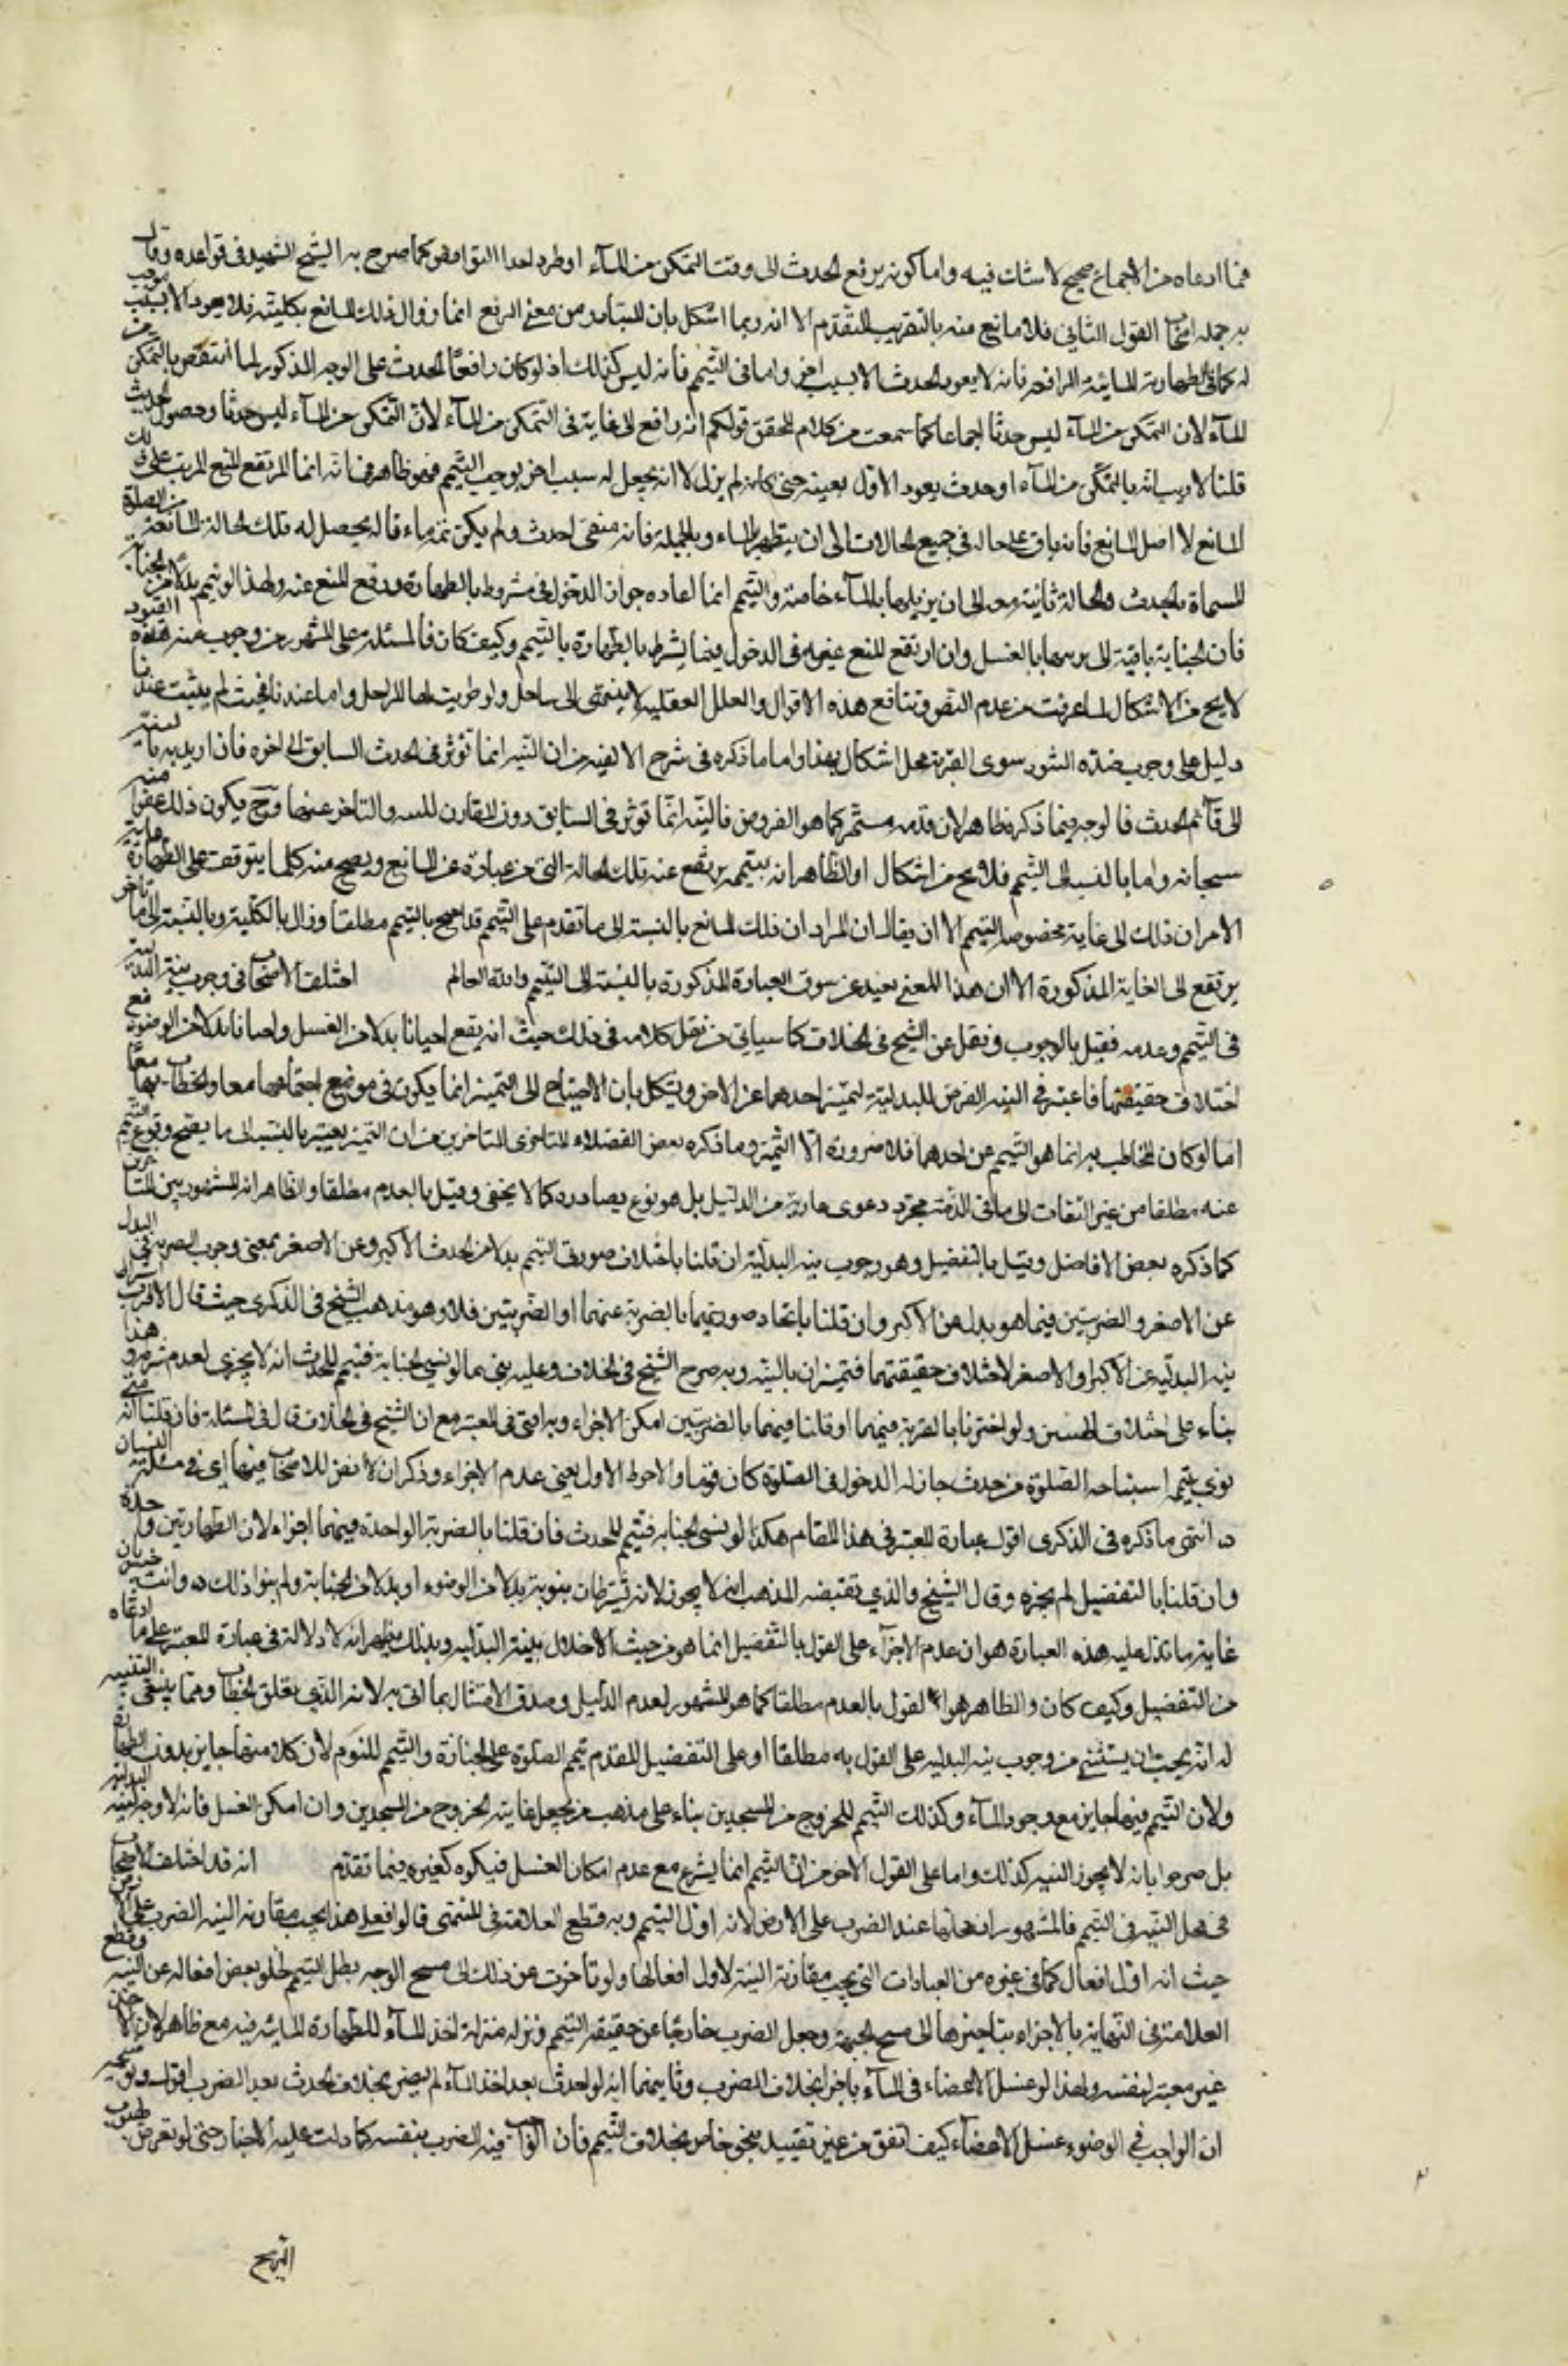 فما ادعاه من الاجماع صحيح لا شك فيه واما كونه يرفع الحدث الى وقت التمكن من المآء او طرو احد النواقض كما صرح به الشيخ الشهيد في قواعده وقال
به جملة اصحاب القول الثاني فلا مانع منه بالتقريب المتقدم الا انه ربما اشكل بان المتبادر من معنى الرفع انما زوال ذلك المانع بكليته فلا يعود الا بسبب موجب
له كما في الطهارة المائية الرافعة فانه لا يعود الحدث الا بسبب اخر واما في التيمم فانه ليس كذلك اذ لو كان رافعا للحدث على الوجه المذكور لما انتقض بالتمكن من
المآء لان التمكن من المآء ليس حدثا اجماعا كما سمعت من كلام المحقق قولكم انه رافع الى غاية هي التمكن من المآء لان التمكن من المآء ليس حدثا وحصول الحدث
قلنا لا ريب انه بالتمكن من المآء او حدث يعود الاول بعينه حتى كانه لم يزل لا انه يجعل له سبب اخر يوجب التيمم فهو ظاهر في انه انما ارتفع المنع المرتب على ذلك
المانع لا اصل المانع فانه باق على حاله في جميع الحالات الى ان يتطهر بالماء وبالجملة فانه متى احدث ولم يكن ثمة ماء فانه يحصل له تلك الحالة المانعة من الصلوة
المسماة بالحدث والحالة ثابتة معه الى ان يزيلها بالمآء خاصة والتيمم انما افاده جواز الدخول في مشروط بالطهارة ورفع المنع عنه ولهذا لو تيمم بدلا من الجنابة
فان الجنابة باقية الى يرفعها بالغسل وان ارتفع المنع عنه في الدخول فيما يشترط بالطهارة بالتيمم وكيف كان فالمسئلة على المشهور من وجوب هذه القيود
لا يخ من الاشكال لما عرفت من عدم النص وتدافع هذه الاقوال والعلل العقلية لا ينتهي الى ساحل ولو طويت لها المراحل واما عندنا فحيث لم يثبت عندنا
دليل على وجوب هذه الشروط سوى القربة فمحل اشكال بهذا واما ما ذكره في شرح الالفية من ان النية انما تؤثر في الحدث السابق الى اخره فان اريد به بالنسبة
الى دائم الحدث فالوجه فيما ذكره ظاهر لان حدثه مستمر كما هو المفروض فالنية انما تؤثر في السابق دون المقارن للنية والمتاخر عنها وح يكون ذلك عفوا منه
سبحانه واما بالنسبة الى التيمم فلا يخ من اشكال اذ الظاهر انه بتيممه يرتفع عنه تلك الحالة التي هي عبارة عن المانع ويصح منه كلما يتوقف على الطهارة غاية
الامر ان ذلك الى غاية مخصوصة في التيمم الا ان يقال ان المراد ان ذلك المانع بالنسبة الى ما تقدم على التيمم قد ارتفع بالتيمم مطلقا وزال بالكلية وبالنسبة الى ما تاخر
يرتفع الى الغاية المذكورة الا ان هذا المعنى بعيد عن سوق العبارة المذكورة بالنسبة الى التيمم والله العالم اختلف الاصحاب في وجوب نية البدلية
في التيمم وعدمه فقيل بالوجوب ونقل عن الشيخ في الخلاف كما سياتي من نقل كلامه في ذلك حيث انه يقع احيانا بدلا من الغسل واحيانا بدلا من الوضوء مع
اختلاف حقيقتهما فاعتبر في النية التعرض للبدلية لتميز احدهما عن الاخر ويشكل بان الاحتياج الى التمييز انما يكون في موضع اجتماعهما معا والخطاب بهما معا
اما لو كان المخاطب به انما هو التيمم عن احدهما فلا ضرورة الى التميز وما ذكره بعض الفضلاء المتاخرين من ان التميز يعتبر بالنسبة الى ما يصح وقوع التيمم
عنه مطلقا من غير التفات الى ما في الذمة مجرد دعوى عارية من الدليل بل هو نوع مصادرة كما لا يخفى وقيل بالعدم مطلقا والظاهر انه المشهور بين المتاخرين
كما ذكره بعض الافاضل وقيل بالتفصيل وهو وجوب نية البدلية ان قلنا باختلاف صورتي التيمم بدلا من الحدث الاكبر وعن الاصغر بمعنى وجوب الضربة في البدل
عن الاصغر والضربتين فيما هو بدل عن الاكبر وان قلنا باتحاد صورتيهما بالضربة عنهما او الضربتين فلا وهو مذهب الشيخ في الذكرى حيث قال الاقرب اشتراط
نية البدلية عن الاكبر او الاصغر لاختلاف حقيقتهما فتميزان بالنية وبه صرح الشيخ في الخلاف وعليه بنى ما لو نسي الجنابة فتيمم للحدث انه لا يجزي لعدم شرطه هذا
بناء على اختلاف الهيئتين ولو اجتزينا بالضربة فيهما او قلنا فيهما بالضربتين امكن الاجزاء وبه افتى في المعتبر مع ان الشيخ في الخلاف قال في المسئلة فان قلنا انه متى
نوى بتيممه استباحة الصلوة من حدث جاز له الدخول في الصلوة كان قويا والاحوط الاول يعني عدم الاجزاء وذكر ان لا نص للاصحاب فيها اي في مسئلة النسيان
ه انتهى ما ذكره في الذكرى اقول عبارة المعتبر في هذا المقام هكذا لو نسى الجنابة فتيمم للحدث فان قلنا بالضربة الواحدة فيهما اجزاء لان الطهارتين واحدة
وان قلنا بالتفصيل لم يجزه وقال الشيخ والذي يقتضيه المذهب انه لا يجوز لانه يشترط ان ينوي به بدلا من الوضوء او بدلا من الجنابة ولم ينو ذلك ه وانت خبير بان
غاية ما تدل عليه هذه العبارة هو ان عدم الاجزآء على القول بالتفصيل انما هو من حيث الاخلال بنية البدلية وبذلك يظهر انه لا دلالة في عبارة المعتبر على ما ادعاه
من التفصيل وكيف كان والظاهر هو القول بالعدم مطلقا كما هو المشهور لعدم الدليل وصدق الامتثال بما اتى به لانه الذي تعلق الخطاب ومما ينبغي التنبيه
له انه يجب ان يستثنى من وجوب نية البدلية على القول به مطلقا او على التفصيل المتقدم تيمم الصلوة على الجنازة والتيمم للنوم لان كلا منهما جايز بدون الطهارة
ولان التيمم فيهما جايز مع وجود المآء وكذلك التيمم للخروج من المسجدين بناء على مذهب من يجعل غايته الخروج من المسجدين وان امكن الغسل فانه لا وجه لنية البدلية
بل صرحوا بانه لا يجوز النية كذلك واما على القول الاخر من ان التيمم انما يشرع مع عدم امكان الغسل فيكون كغيره فيما تقدم انه قد اختلف الاصحاب
في محل النية في التيمم فالمشهور ان محلها عند الضرب على الارض لانه اول التيمم وبه قطع العلامة في المنتهى قالوا فعلى هذا يجب مقارنة النية الضرب على الارض
حيث انه اول افعال كما في غيره من العبادات التي يجب مقارنة النية لاول افعالها ولو تاخرت عن ذلك الى مسح الوجه بطل التيمم لخلو بعض افعاله عن النية وقطع
العلامة في النهاية بالاجزاء بتاخيرها الى مسح الجبهة وجعل الضرب خارجا عن حقيقة التيمم ونزله منزلة اخذ المآء للطهارة المائية وفيه مع ظاهر لان الاخذ
غير معتبر لنفسه ولهذا لو غسل الاعضاء في المآء اجزا بخلاف الضرب وثانيهما انه لو احدث بعد اخذ المآء لم يضر بخلاف الحدث بعد الضرب اقول
ان الواجب في الوضوء غسل الاعضاء كيف اتفق من غير تقييد بنحو خاص بخلاف التيمم فان الواجب فيه الضرب بنفسه كما دلت عليه الاخبار حتى لو تعرض لمهب
الريح